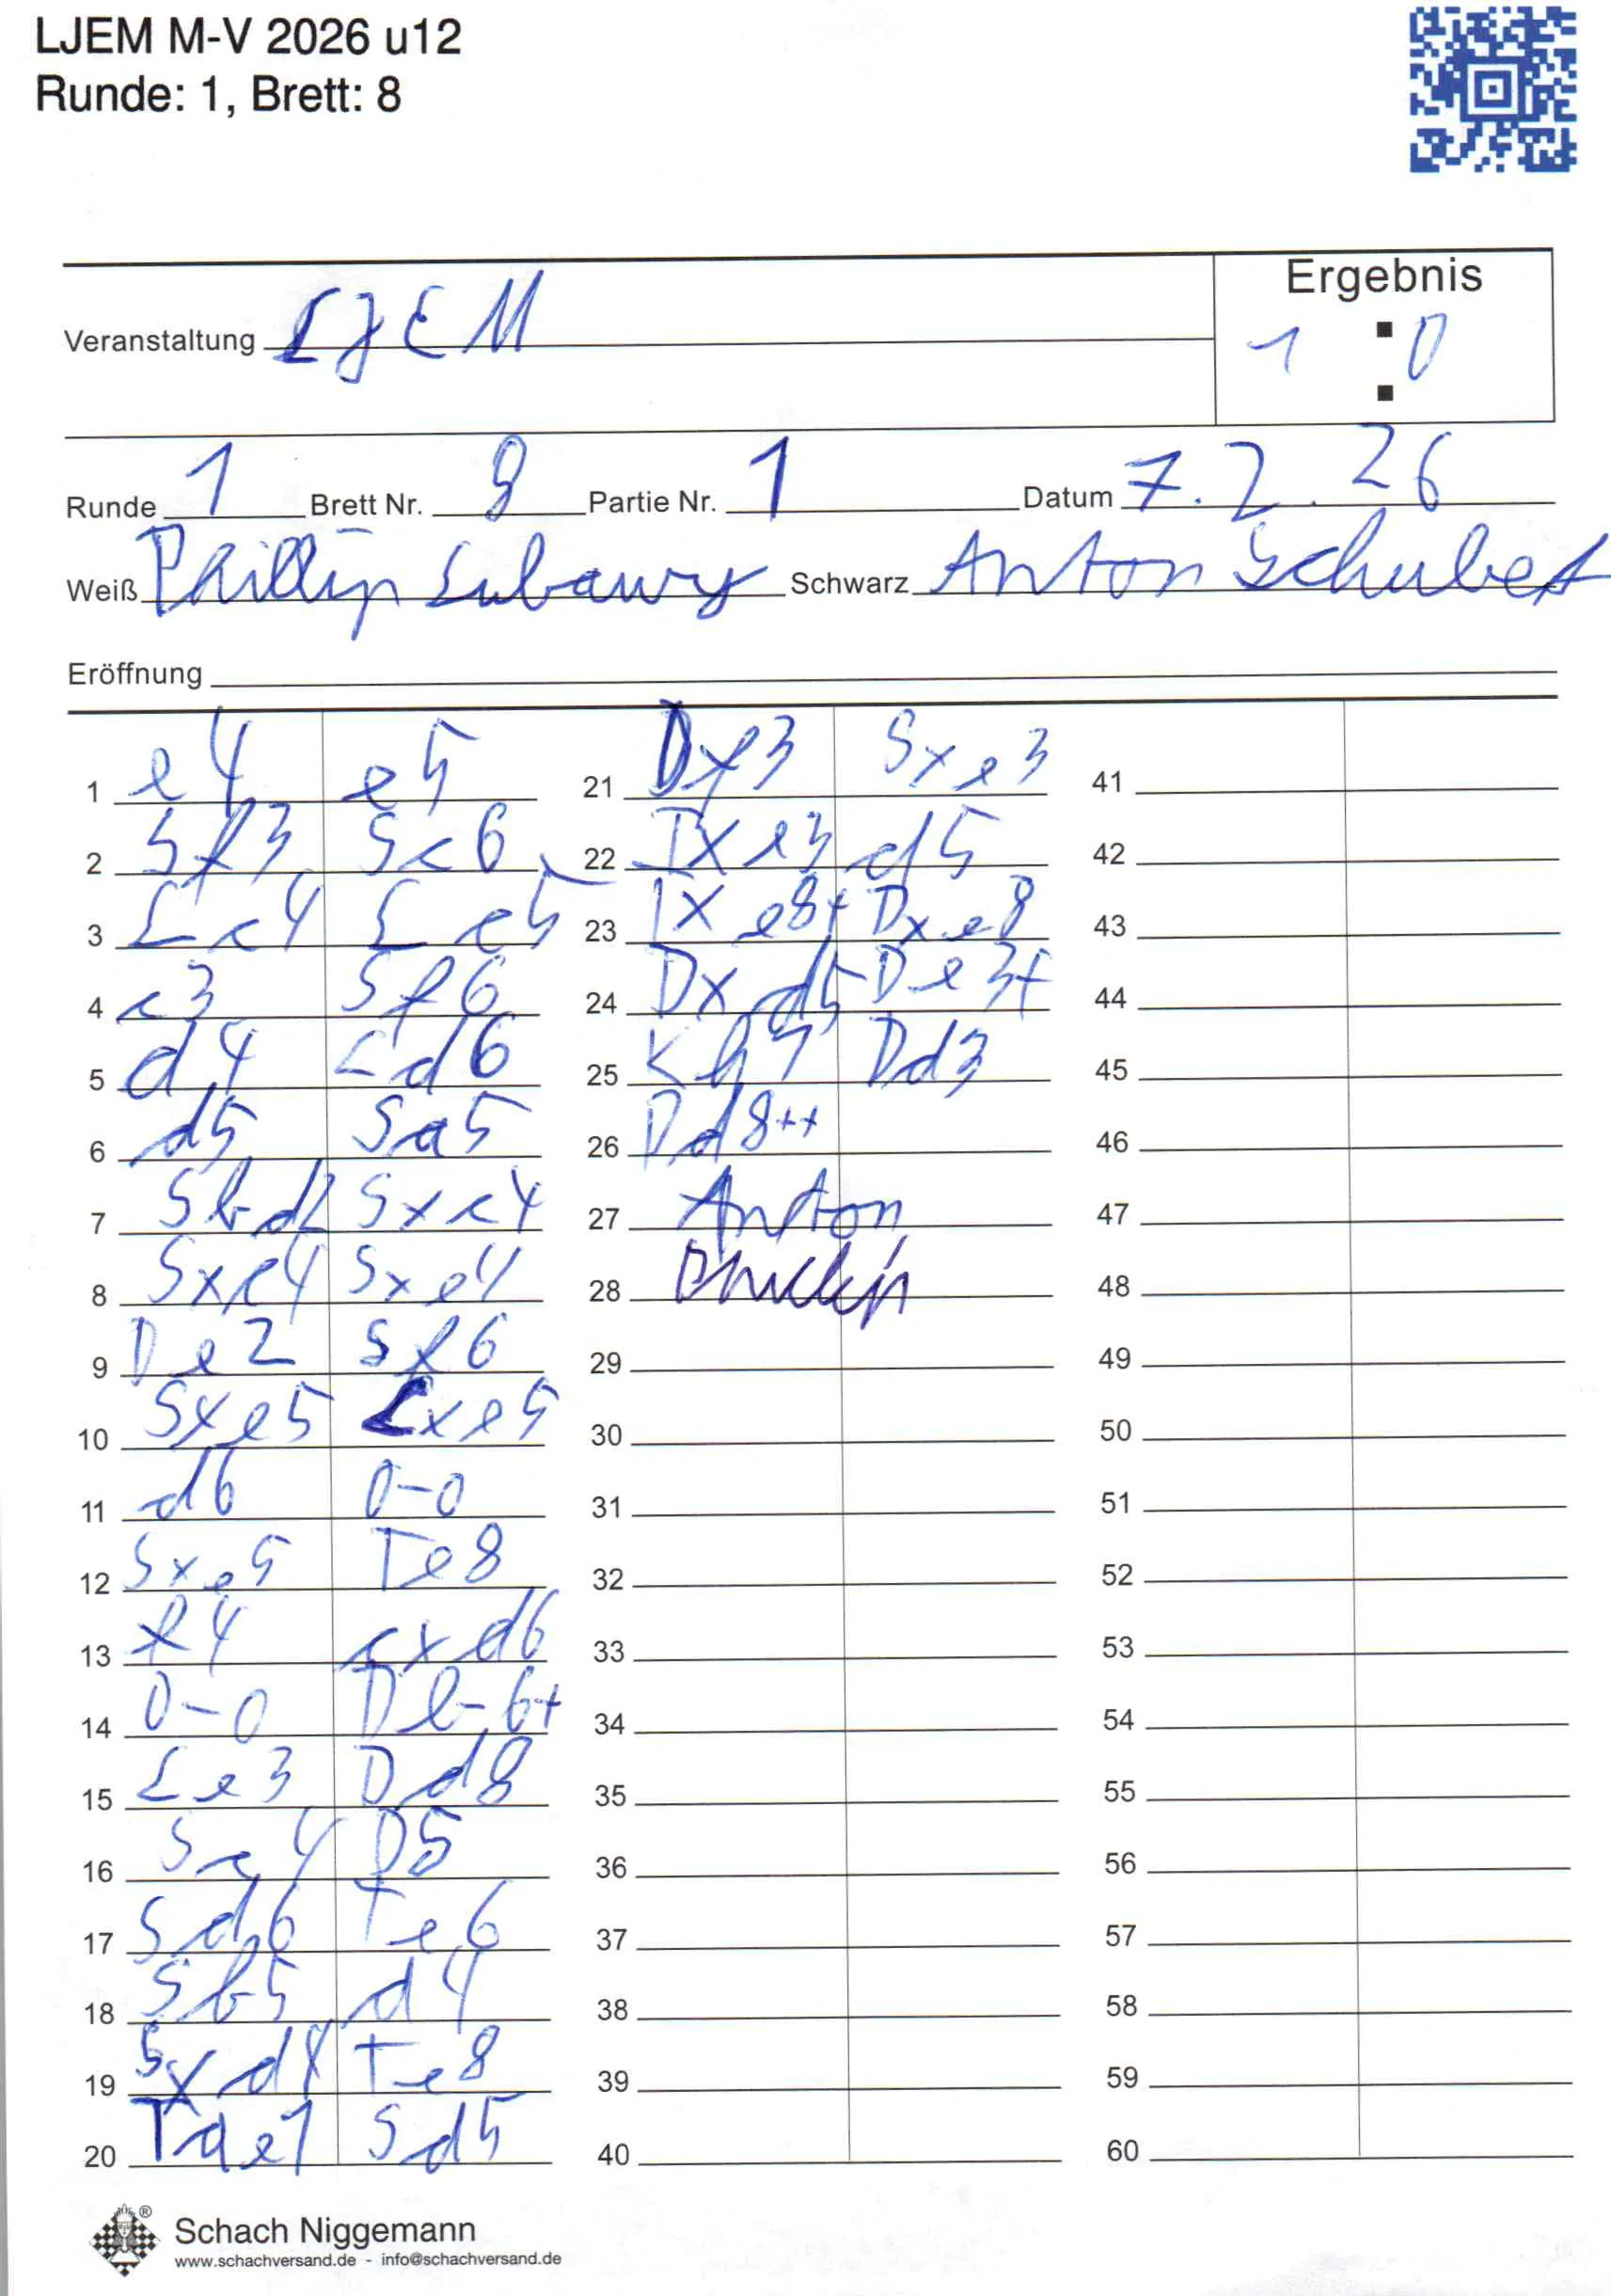 LJEM M-V 2026 u12
Runde: 1, Brett: 8
Veranstaltung LJEM
Ergebnis
1 : 0
Runde 1 Brett Nr. 8 Partie Nr. 1 Datum 7.2.26
Weiß Phillip Schwarz Anton Schubert
Eröffnung
1 e4 e5
2 Sf3 Sc6
3 Lc4 Lc5
4 c3 Sf6
5 d4 Ld6
6 d5 Sa5
7 Sbd2 Sxc4
8 Sxc4 Sxe4
9 De2 Sf6
10 Sxe5 Lxe5
11 d6 0-0
12 Sxe5 Te8
13 f4 cxd6
14 0-0 Db6+
15 Le3 Dd8
16 Sc4 D5
17 Sd6 Te6
18 Sb5 d4
19 Sxd4 Te8
20 Tae1 Sd5
21 Df3 Sxe3
22 Txe3 d5
23 Txe8+ Dxe8
24 Dxd5 De3+
25 Kh1 Dd3
26 Dd8++
27 Anton
28 Phillip
29
30
31
32
33
34
35
36
37
38
39
40
41
42
43
44
45
46
47
48
49
50
51
52
53
54
55
56
57
58
59
60
®
Schach Niggemann
www.schachversand.de - info@schachversand.de